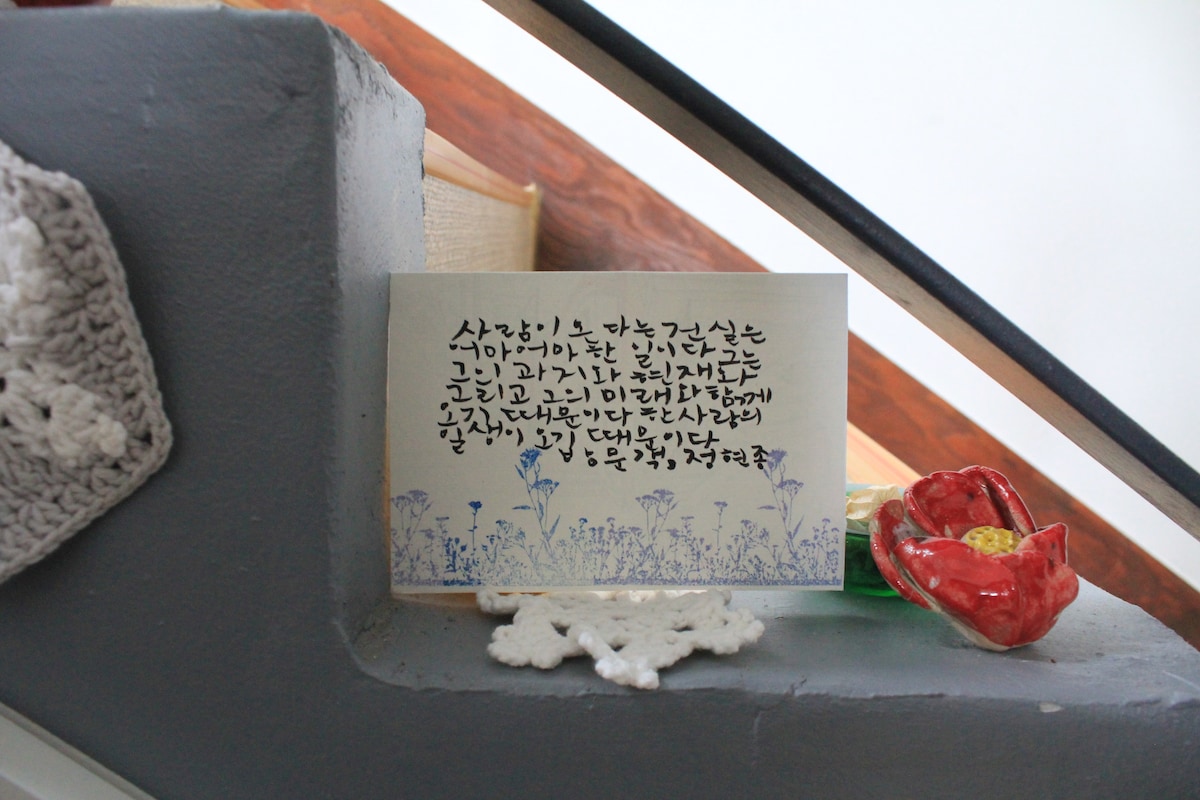 사람이 온다는 건 실은
어마어마한 일이다 그는
그의 과거와 현재와
그리고 그의 미래와 함께
오기 때문이다 한 사람의
일생이 오기 때문이다
방문객, 정현종